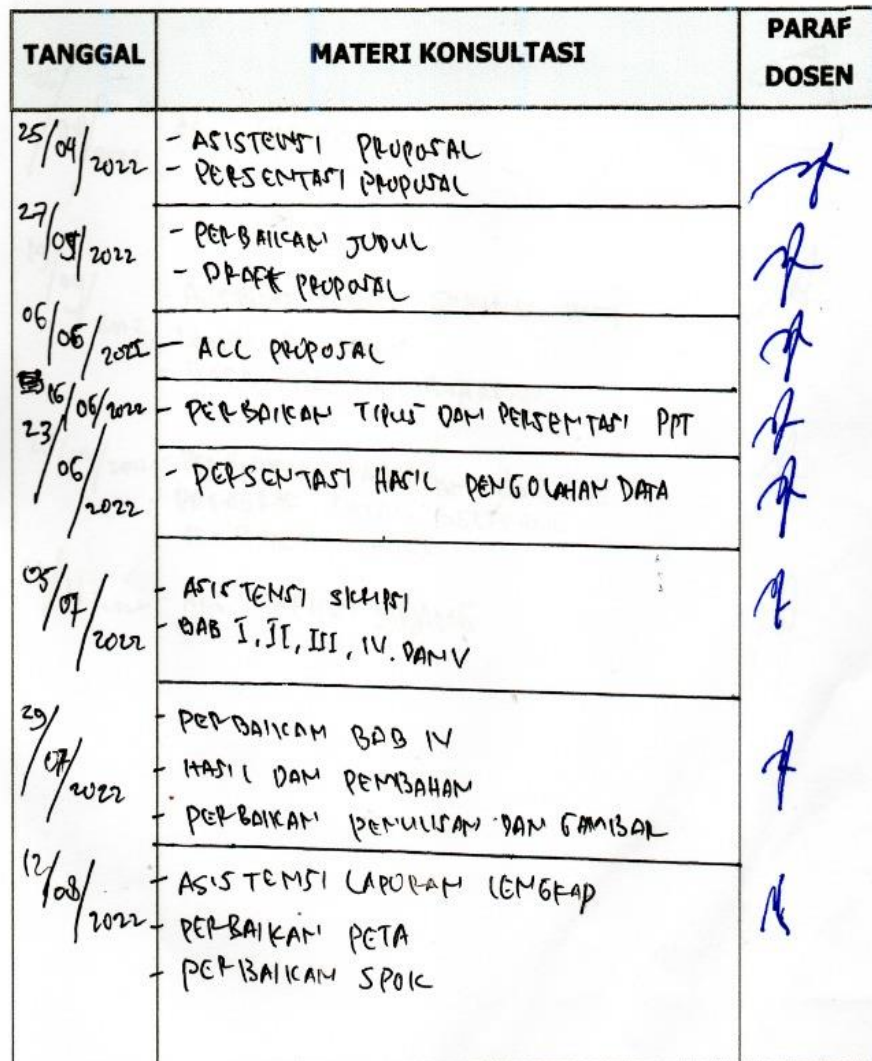 TANGGAL
MATERI KONSULTASI
PARAF
DOSEN
25/04/2022
- ASISTENSI PROPOSAL
- PERSENTASI PROPOSAL
27/05/2022
- PERBAIKAN JUDUL
- DRAFT PROPOSAL
06/06/
- ACC PROPOSAL
16/06/2022
- PERBAIKAN TIPUS DAN PERSENTASI PPT
23/06/2022
- PERSENTASI HASIL PENGOLAHAN DATA
05/07/2022
- ASISTENSI SKRIPSI
- BAB I, II, III, IV. DAN V
29/07/2022
- PERBAIKAN BAB IV
- HASIL DAN PEMBAHAN
- PERBAIKAN PENULISAN DAN GAMBAR
12/08/2022
- ASISTENSI LAPORAN LENGKAP
- PERBAIKAN PETA
- PERBAIKAN SPOK